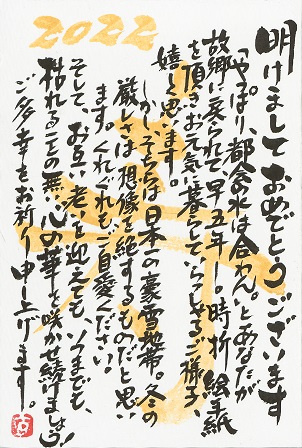 2022
明けましておめでとうございます
「やっぱり、都会の水は合わん。」とあなたが
故郷に戻られて早五年―。時折 絵手紙
を頂きお元気に暮らしていらっしゃるご様子、
嬉しく思います。
しかしそちらは日本一の豪雪地帯。冬の
厳しさは想像を絶するものだと思い
ます。くれぐれもご自愛ください。
そして、お互い老いを迎えても、いつまでも、
枯れることの無い心の華を咲かせ続けましょう!
ご多幸をお祈り申し上げます。